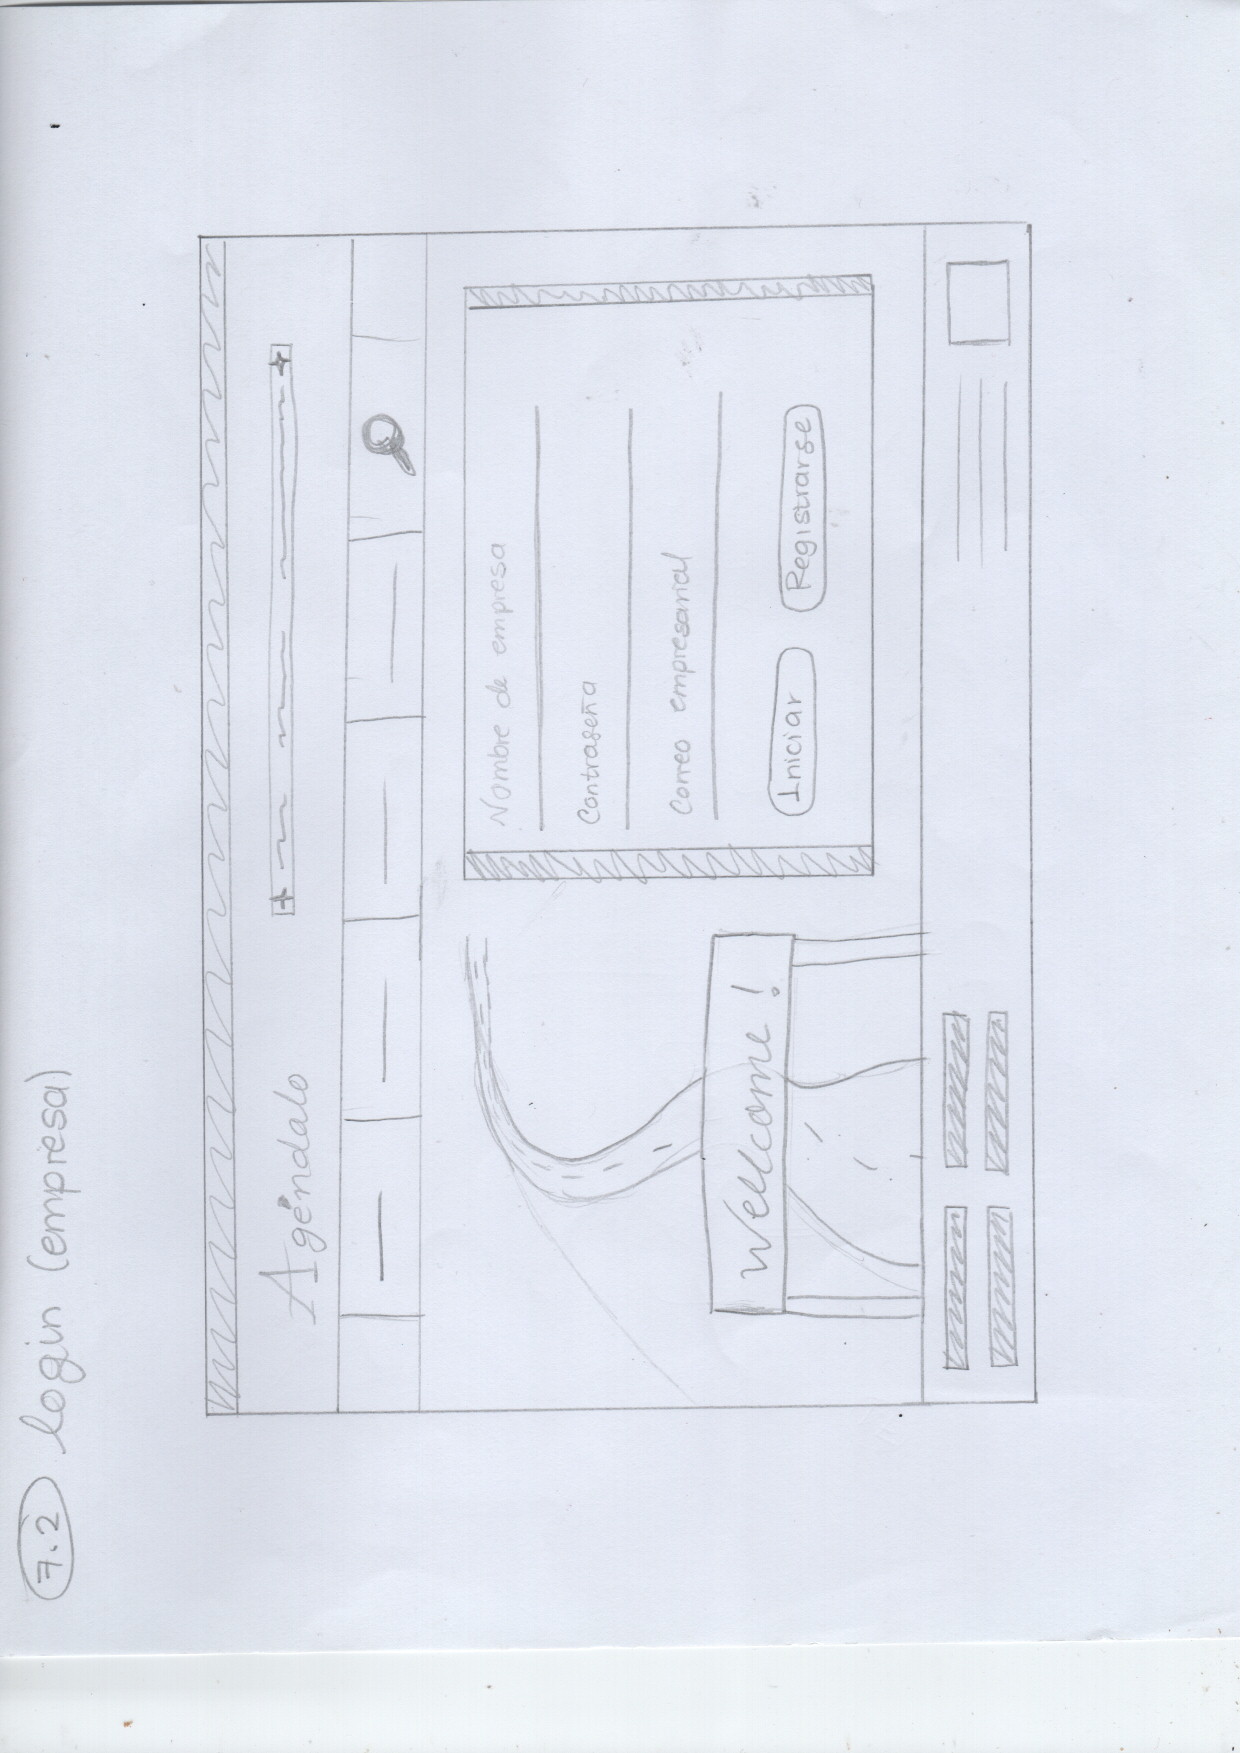 7.2 login (empresa)
Agéndalo
Nombre de empresa
Contraseña
Correo empresarial
Wellcome!
Iniciar
Registrarse